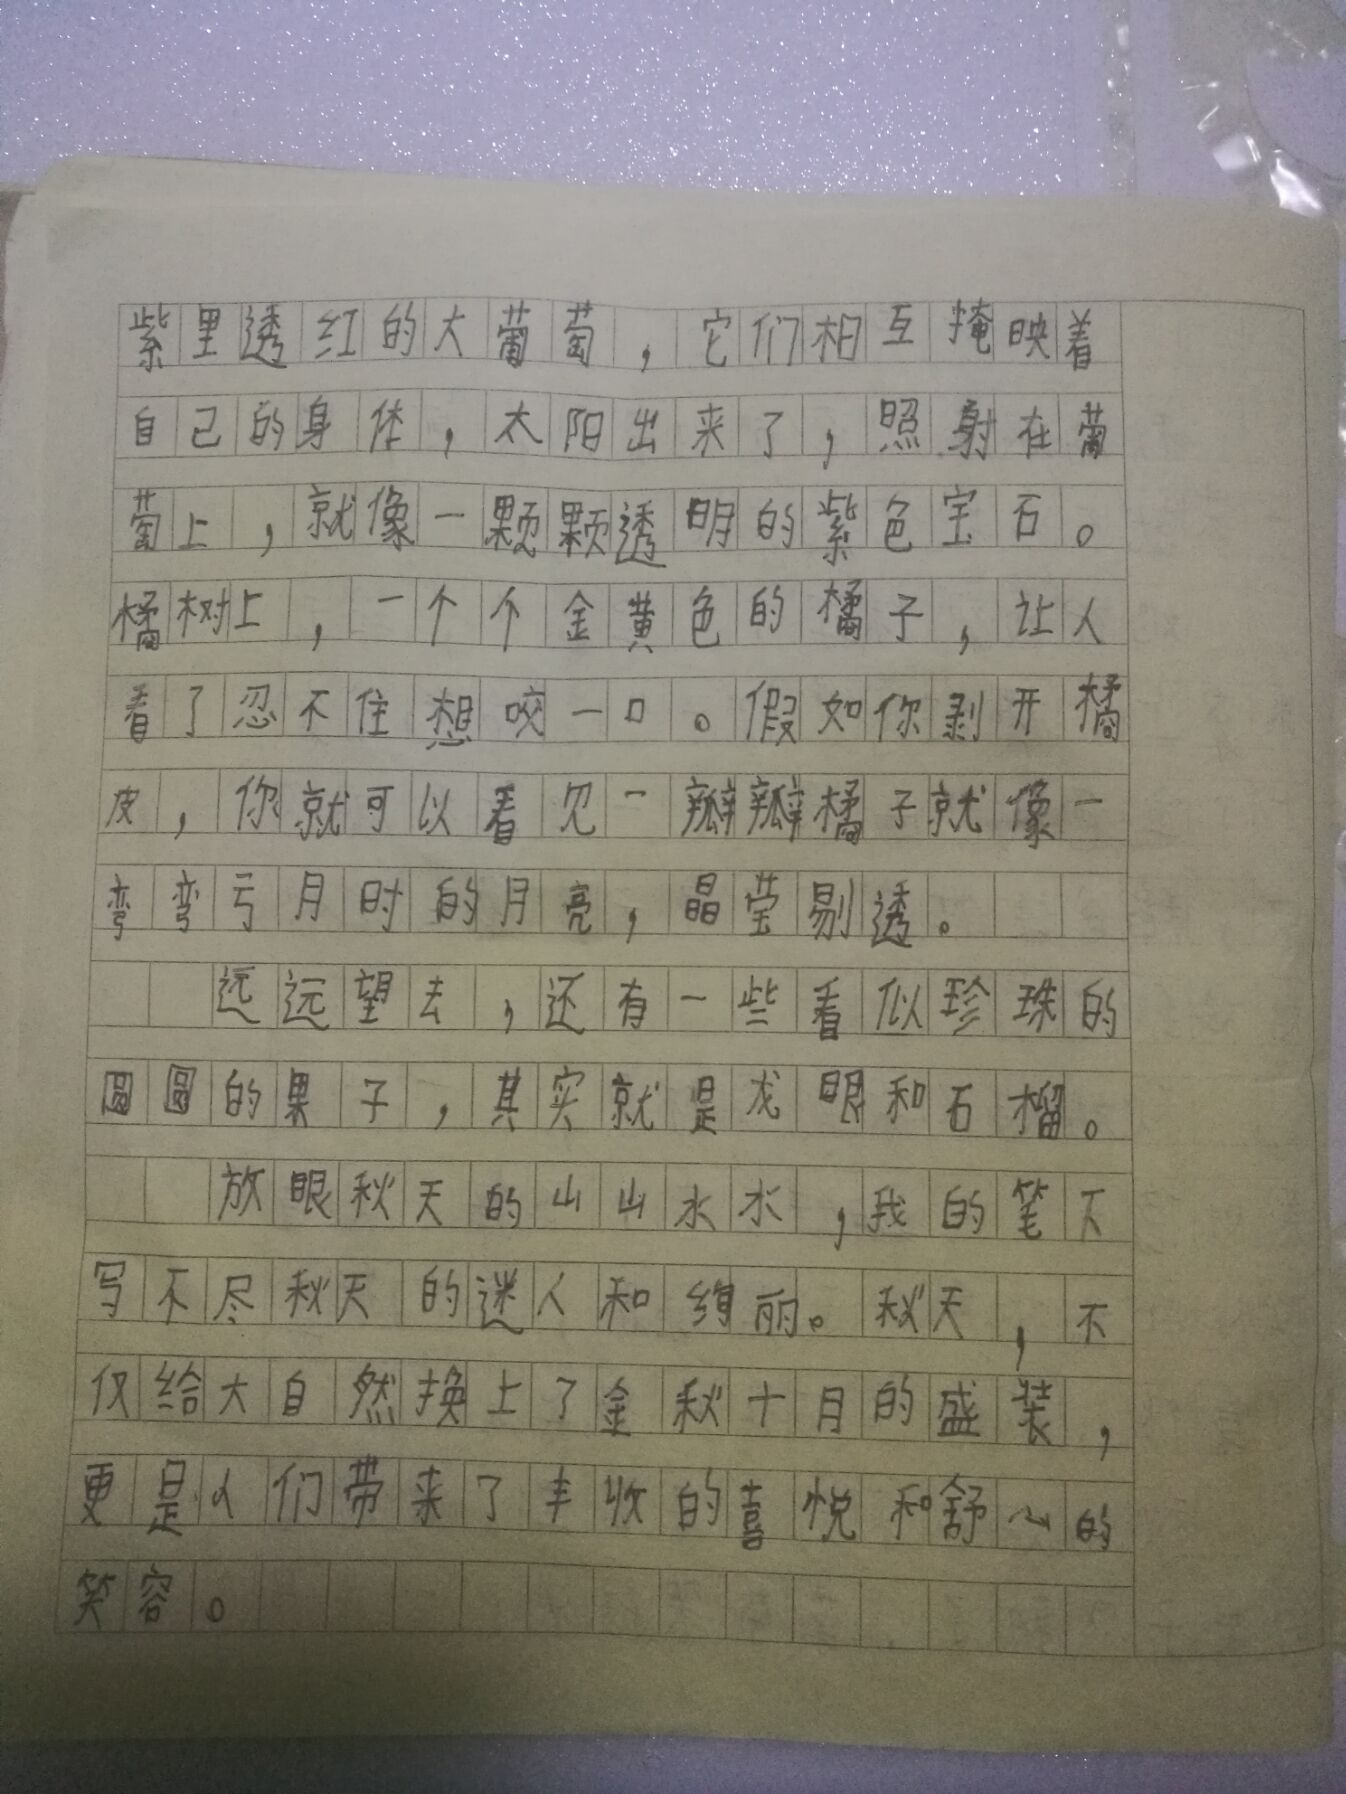 紫里透红的大葡萄，它们相互掩映着
自己的身体，太阳出来了，照射在葡
萄上，就像一颗颗透明的紫色宝石。
橘树上，一个个金黄色的橘子，让人
看了忍不住想咬一口。假如你剥开橘
皮，你就可以看见一瓣瓣橘子就像一
弯弯亏月时的月亮，晶莹剔透。
远远望去，还有一些看似珍珠的
圆圆的果子，其实就是龙眼和石榴。
放眼秋天的山山水水，我的笔下
写不尽秋天的迷人和绚丽。秋天，不
仅给大自然换上了金秋十月的盛装，
更是人们带来了丰收的喜悦和舒心的
笑容。